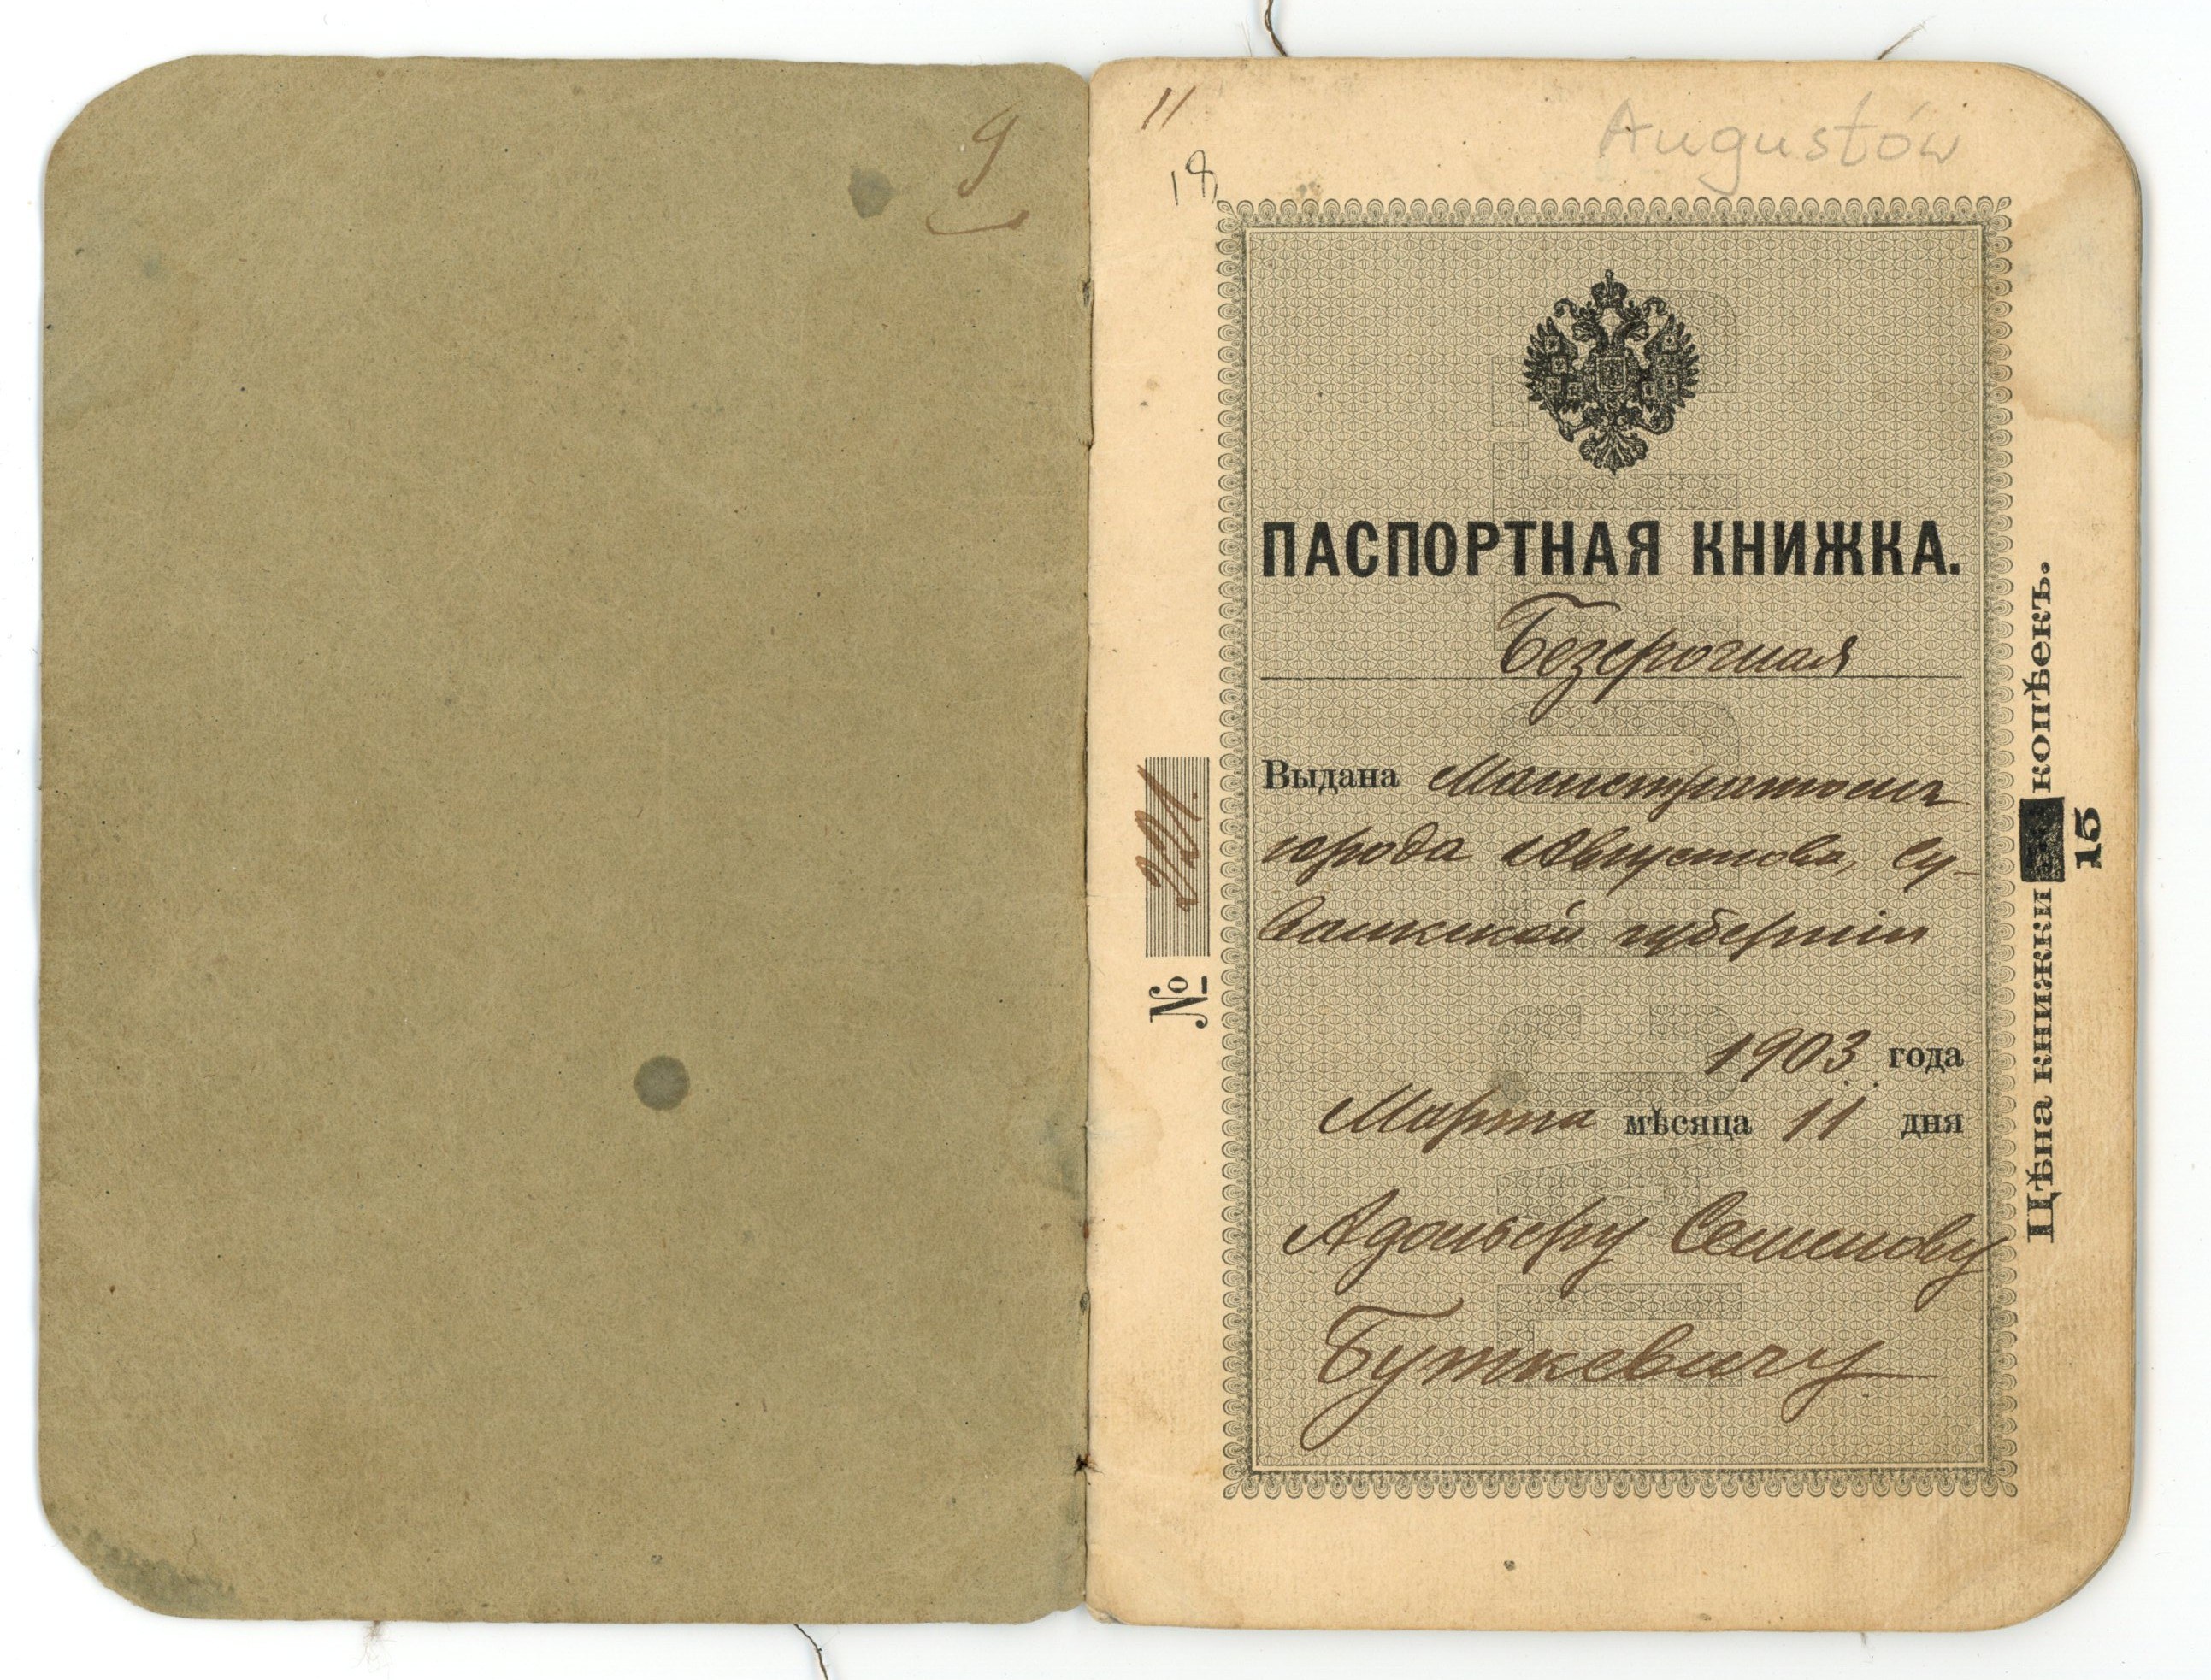 9
11
Augustów
ПАСПОРТНАЯ КНИЖКА.
Безсрочная
Выдана Магистратомъ
города Августова, Су-
валкской губерніи
1903 года
Марта мѣсяца 11 дня
Адольфу Семенову
Буткевичу
№
Цѣна книжки копѣекъ.
15